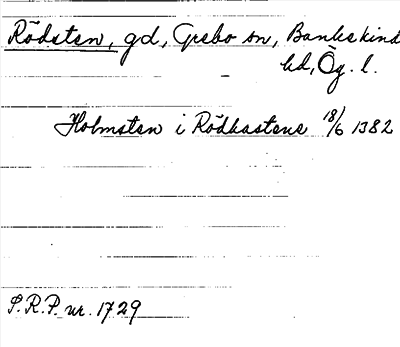 Rödsten, gd, Grebo sn, Bankekind
hd, Ög. l.
Holmsten i Rödhastens 18/6 1382
S.R.P. nr. 1729